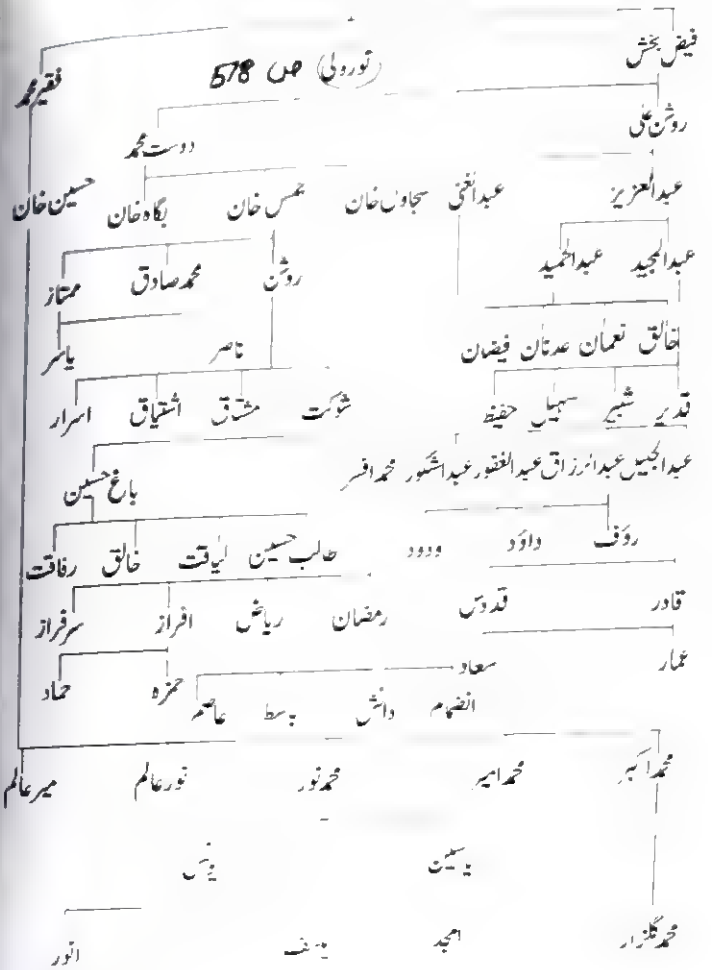 فیض بخش (نورولی) ص 578 فقیر محمد
روشن علی دوست محمد
عبدالعزیز عبدالغنی سجاول خان شمس خان بگاہ خان حسین خان
عبدالمجید عبدالحمید روشن محمد صادق ممتاز
خالق نعمان عدنان فیضان ناصر یاسر
قدیر شبیر سہیل حفیظ شوکت مشتاق اشتیاق اسرار
عبدالجلیل عبدالرزاق عبدالغفور عبدالشکور محمد افسر باغ حسین
رؤف داؤد ودود طالب حسین لیاقت خالق رفاقت
قادر قدوس رمضان ریاض افراز سرفراز
عمار سعاد حمزہ حماد
انضمام دانش باسط عاصم
محمد اکبر محمد امیر محمد نور نور عالم میر عالم
یٰسین یونس
محمد گلزار امجد یوسف انور